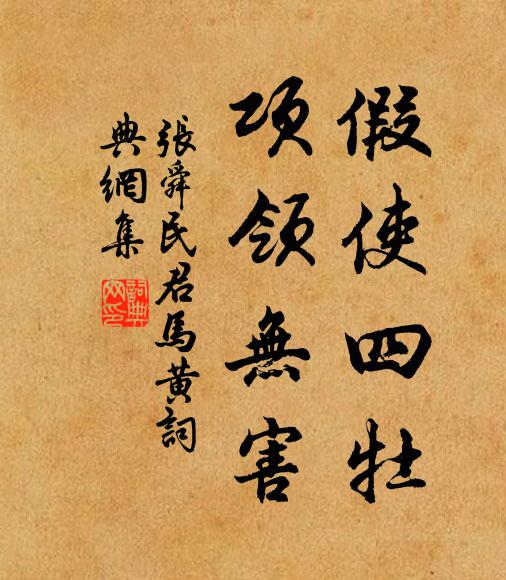 假使四牡
項領無害
張舜民君馬黃詞
典網集
詞典網印